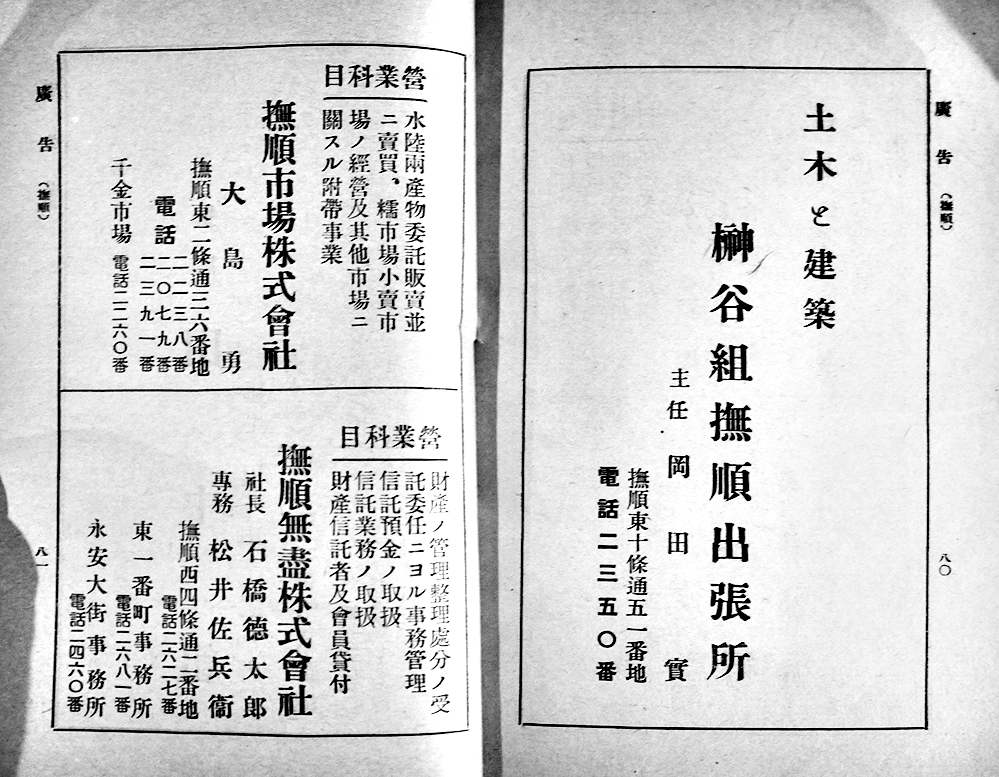 廣告（撫順）
八〇
土木と建築
榊谷組撫順出張所
主任 岡田實
撫順東十條通五一番地
電話二三五〇番
營業科目
水陸兩產物委託販賣並
ニ賣買、糯市場小賣市
場ノ經營及其他市場ニ
關スル附帶事業
撫順市場株式會社
大島勇
撫順東二條通三六番地
電話
二二三八番
二〇七九番
二三九一番
千金市場 電話二二六〇番
營業科目
財產ノ管理整理處分ノ受
託委任ニヨル事務管理
信託預金ノ取扱
信託業務ノ取扱
財產信託者及會員貸付
撫順無盡株式會社
社長 石橋德太郎
專務 松井佐兵衞
撫順西四條通二番地
電話二六二七番
東一番町事務所
電話二六八一番
永安大街事務所
電話二四六〇番
廣告（撫順）
八一